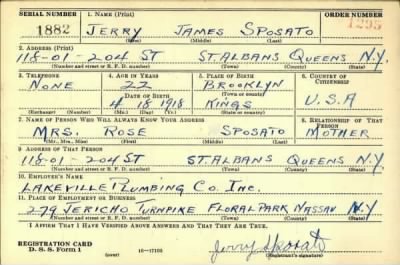 SERIAL NUMBER 1. NAME (Print) ORDER NUMBER
1882 JERRY JAMES SPOSATO 1295
(First) (Middle) (Last)
2. ADDRESS (Print)
118-01-204 ST ST. ALBANS QUEENS N.Y.
(Number and street or R. F. D. number) (Town) (County) (State)
3. TELEPHONE 4. AGE IN YEARS 5. PLACE OF BIRTH 6. COUNTRY OF CITIZENSHIP
NONE 22 BROOKLYN
DATE OF BIRTH (Town or county)
4 18 1918 KINGS U.S.A
(Exchange) (Number) (Mo.) (Day) (Yr.) (State or country)
7. NAME OF PERSON WHO WILL ALWAYS KNOW YOUR ADDRESS 8. RELATIONSHIP OF THAT PERSON
MRS. ROSE SPOSATO MOTHER
(Mr., Mrs., Miss) (First) (Middle) (Last)
9. ADDRESS OF THAT PERSON
118-01-204 ST ST. ALBANS QUEENS N.Y.
(Number and street or R. F. D. number) (Town) (County) (State)
10. EMPLOYER'S NAME
LAKEVILLE PLUMBING CO. INC.
11. PLACE OF EMPLOYMENT OR BUSINESS
279 JERICHO TURNPIKE FLORAL PARK NASSAU N.Y
(Number and street or R. F. D. number) (Town) (County) (State)
I AFFIRM THAT I HAVE VERIFIED ABOVE ANSWERS AND THAT THEY ARE TRUE.
REGISTRATION CARD
D. S. S. FORM 1 (over) 16—17105 Jerry Sposato
(Registrant's signature)